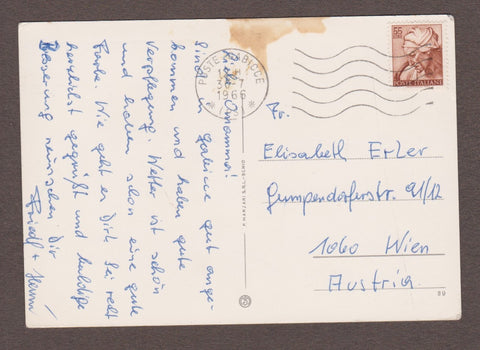 Liebe Omammi!
Sind in Gabicce gut ange-
kommen und haben gute
Verpflegung. Wetter ist schön
und haben schon eine gute
Farbe. Wie geht es Dir? Sei recht
herzlichst gegrüßt und baldige
Besserung wünschen Dir
Friedl +
POSTE GABICCE
1966
55
POSTE ITALIANE
Elisabeth Erler
Gumpendorferstr. 91/12
1060 Wien
Austria.
89